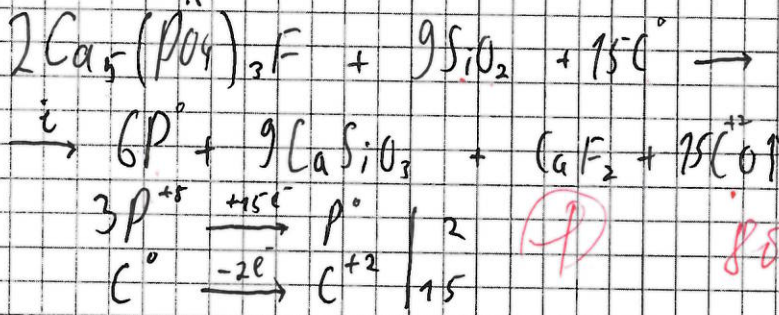 2Ca₅(PO₄)₃F + 9SiO₂ + 15C⁰ →
t→ 6P⁰ + 9CaSiO₃ + CaF₂ + 15C⁺²O↑
3P⁺⁵ +15e⁻→ P⁰ | 2
C⁰ -2e⁻→ C⁺² | 15